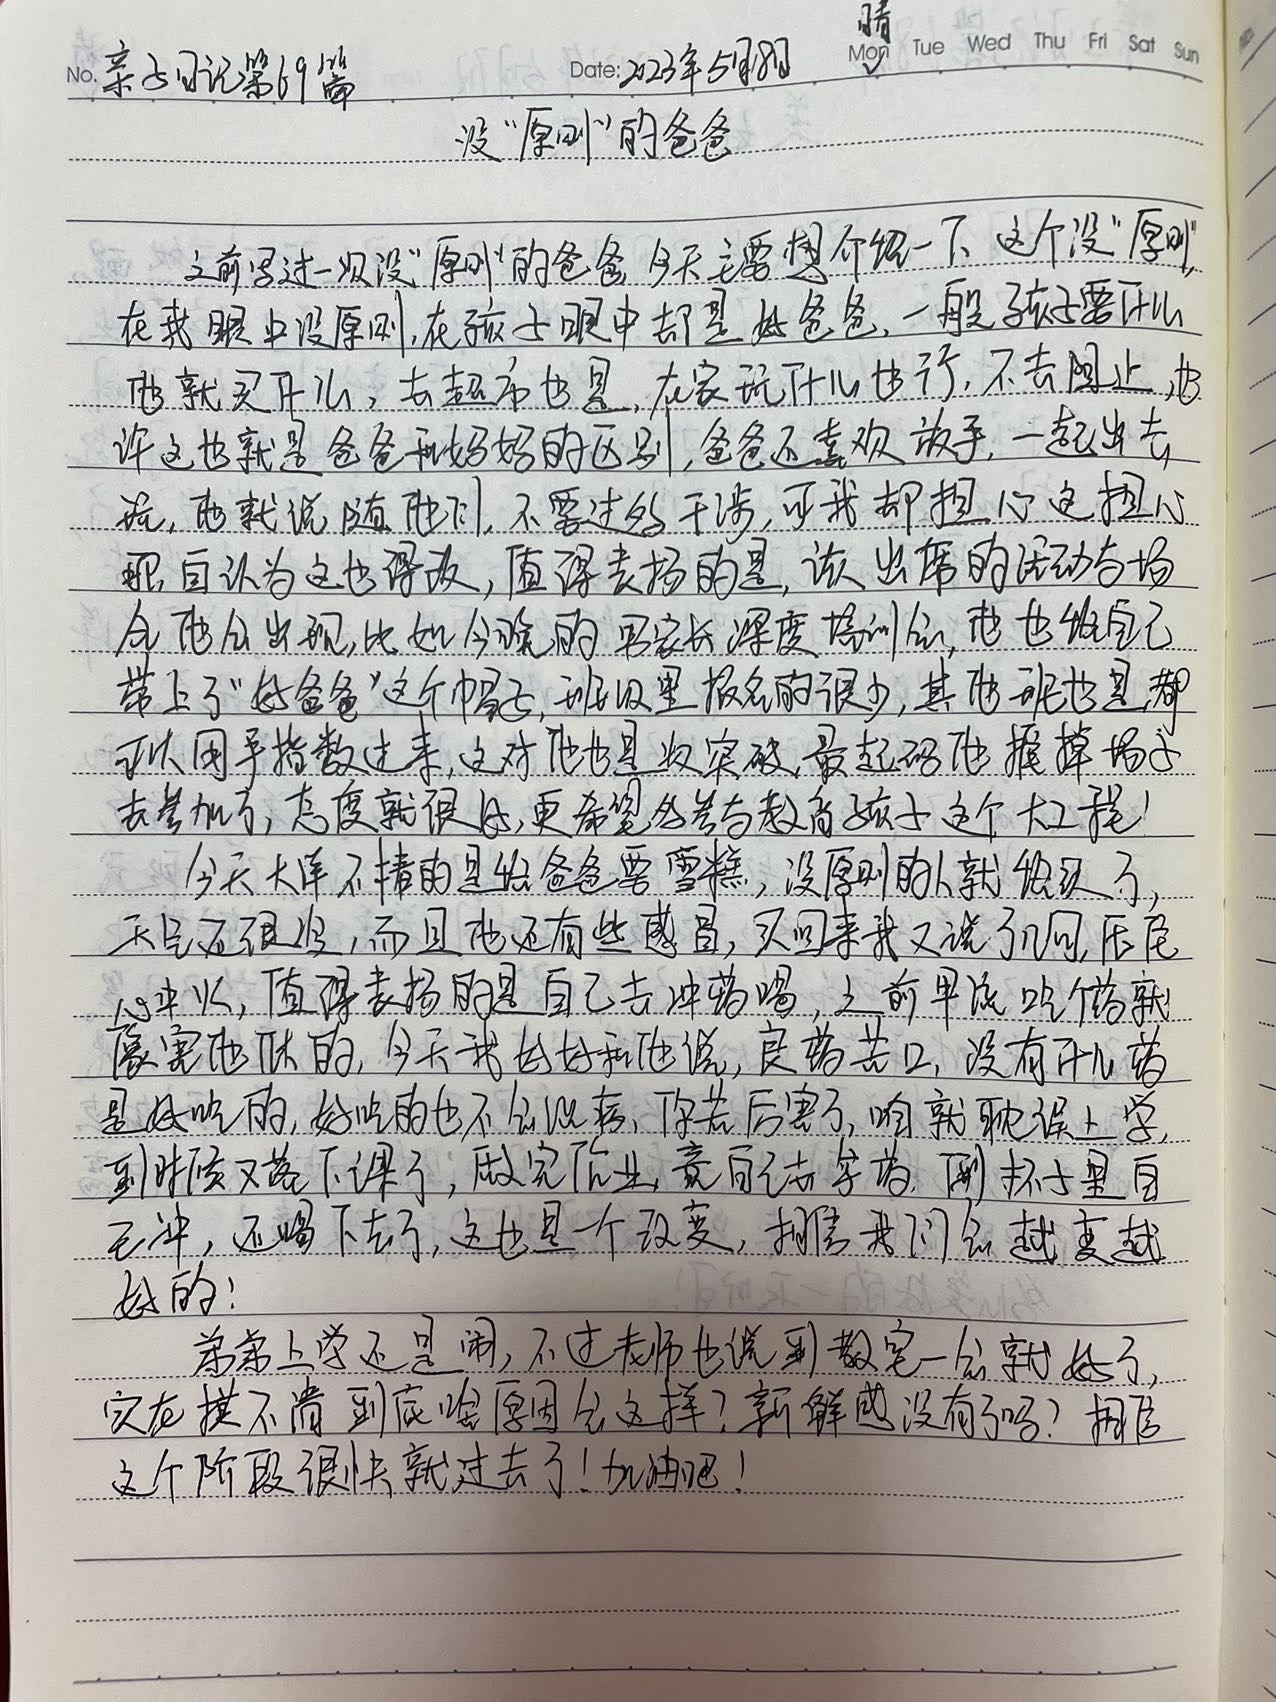 晴
No. 亲子日记第69篇 Date: 2023年5月8日 Mon Tue Wed Thu Fri Sat Sun
没“原则”的爸爸
之前写过一次没“原则”的爸爸,今天主要想介绍一下这个没“原则”,
在我眼中没原则,在孩子眼中却是好爸爸,一般孩子要什么
他就买什么,去超市也是,在家玩什么也行,不去阻止,也
许这也就是爸爸和妈妈的区别,爸爸还喜欢放手,一起出去
玩,他就说随他们,不要过多干涉,可我却担心这担心
那,自认为这也得改,值得表扬的是,该出席的活动与场
合他会出现,比如今晚的男家长深度培训会,他也给自己
带上了“好爸爸”这个帽子,班级里报名的很少,其他班也是,都
可以用手指数过来,这对他也是次突破,最起码他推掉场子
去参加了,态度就很好,更希望多参与教育孩子这个大工程!
今天大洋不精的是给爸爸要雪糕,没原则的人就给买了,
天气还很凉,而且他还有些感冒,买回来我又说了几句,压住
心中火,值得表扬的是自己去冲药喝,之前早说吃个药就
像害他似的,今天我好好和他说,良药苦口,没有什么药
是好吃的,好吃的也不会治病,你若厉害了,咱就耽误上学,
到时候又落下课了,做完作业,竟自己去拿药,倒杯子里自
己冲,还喝下去了,这也是一个改变,相信我们会越变越
好的!
弟弟上学还是闹,不过老师也说到教室一会就好了,
实在摸不清到底啥原因会这样?新鲜感没有了吗?相信
这个阶段很快就过去了!加油吧!